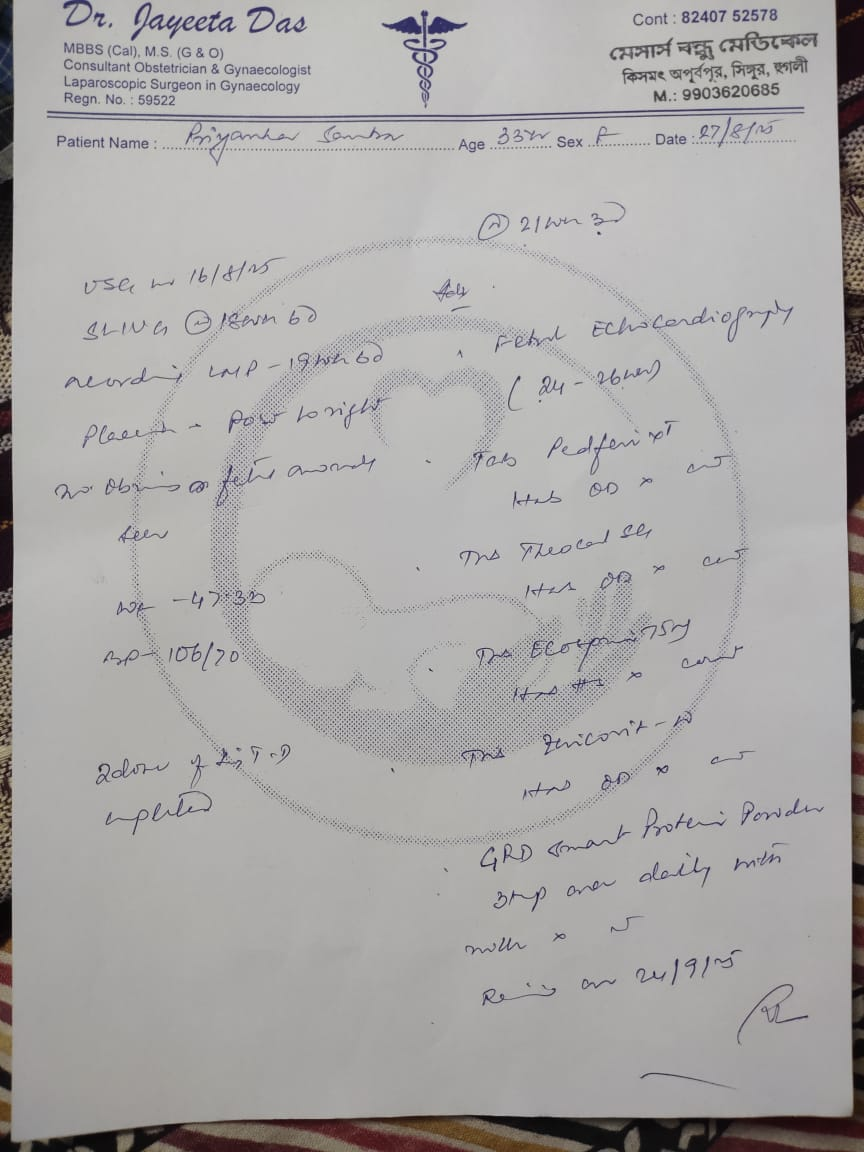 Dr. Jayeeta Das
MBBS (Cal), M.S. (G & O)
Consultant Obstetrician & Gynaecologist
Laparoscopic Surgeon in Gynaecology
Regn. No. : 59522
Cont : 82407 52578
মেসার্স বন্ধু মেডিকেল
কিসমৎ অপূর্বপুর, সিঙ্গুর, হুগলী
M.: 9903620685
Patient Name : Priyanka Age 33yr Sex F Date : 27/8/25
21wk 3D
USG 16/8/25
SLIUG 18wk 6D
according LMP - 19wk 6D
Placenta - Post to right
No obvious fetal anomaly
seen
Wt - 47.3
BP - 106/70
2 dose of Inj T.D
completed
Adv
Fetal Echocardiography
(24 - 26wk)
Tab Pedferi XT
1tab OD x
Tab
1tab OD x
Tab Ecosprin 75mg
1tab x cont
Tab
1tab OD x
GRD Smart Protein Powder
3tsp daily with
milk x
Review on 24/9/25